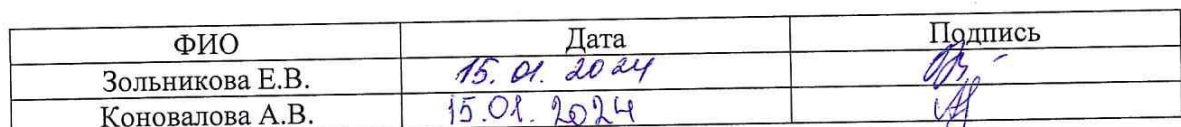 ФИО Дата Подпись
Зольникова Е.В. 15.01.2024
Коновалова А.В. 15.01.2024